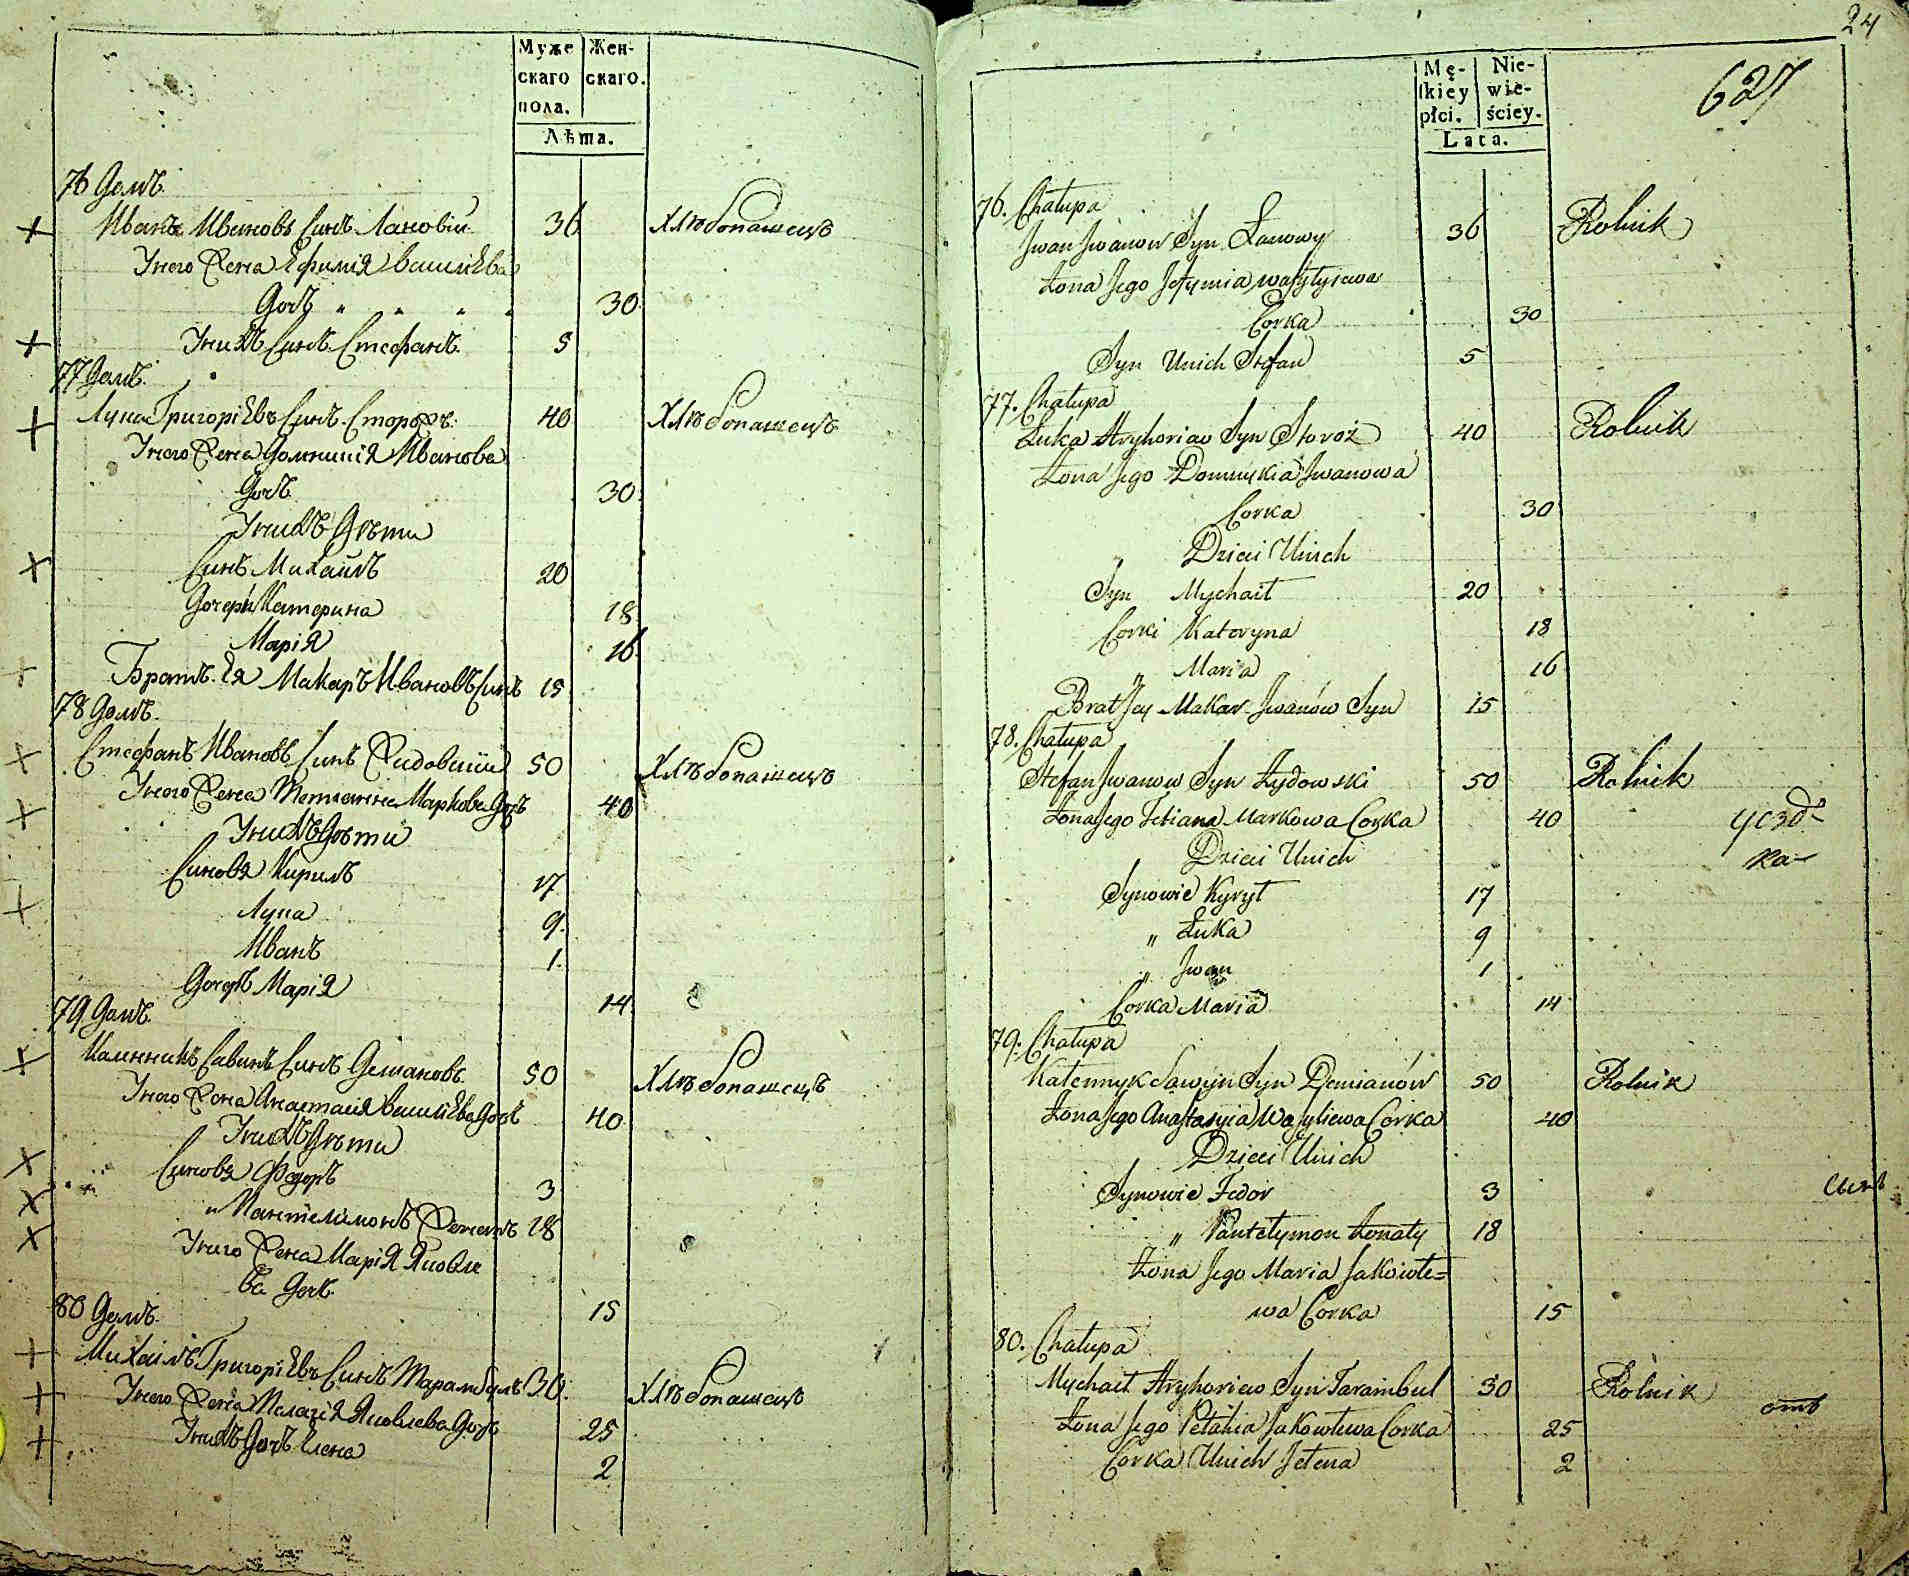 Муже
скаго
пола.
Жен-
скаго.
Лѣта.
76 Домъ.
Иванъ Ивановъ Синъ Лановій 36 Хлѣбопашецъ
Унего Жена Ефимія Василіева
Дочъ " " " " 30
Унихъ Синъ Стефанъ. 5
77 Домъ.
Лука Григоріевъ Синъ Сторожъ. 40 Хлѣбопашецъ
Унего Жена Домникія Иванова
Дочъ 30
Унихъ Дѣти
Синъ Михайлъ 20
Дочери Катерина 18
Марія 16
Братъ Ея Макаръ Ивановъ Синъ 15
78 Домъ.
Стефанъ Ивановъ Синъ Жидовскій 50 Хлѣбопашецъ
Унего Жена Тетianна Маркова Дочъ 40
Унихъ Дѣти
Синовя Кирилъ 17
Лука 9.
Иванъ 1.
Дочеръ Марія 14
79 Домъ.
Каленникъ Савинъ Синъ Демяновъ 50 Хлѣбопашецъ
Унего Жена Анастасія Василіева Дочъ 40
Унихъ Дѣти
Синовя Федоръ 3
" Пантелимонъ Женатъ 18
Унего Жена Марія Яковле
ва Дочъ 15
80 Домъ.
Михаилъ Григоріевъ Синъ Тарамбулъ 30. Хлѣбопашецъ
Унего Жена Пелагія Яковлева Дочъ 25
Унихъ Дочъ Елена 2
24
627
Mę-
ſkiey
płci.
Nie-
wie-
ściey.
Lata.
76. Chałupa
Jwan Jwanow Syn Łanowy 36 Rolnik
Żona Jego Jefymia Wasylyiewa
Corka 30
Syn Unich Stefan 5
77. Chałupa
Łuka Hryhoriew Syn Storoż 40 Rolnik
Żona Jego Domnykia Jwanowa
Corka 30
" Dzieci Unich
Syn Mychaił 20
Corki Kateryna 18
" Maria 16
Brat Jey Makar Jwanów Syn 15
78. Chałupa
Stefan Jwanow Syn Żydowski 50 Rolnik
Żona Jego Tetiana Markowa Corka 40
Dzieci Unich
Synowie Kyrył 17
" Łuka 9
" Jwan 1
Corka Maria 14
79. Chałupa
Kałennyk Sawyn Syn Demianów 50 Rolnik
Żona Jego Anastasyia Wasyliewa Corka 40
Dzieci Unich
Synowie Fedor 3
" Pantełymon Żonaty 18
Żona Jego Maria Jakowłe=
wa Corka 15
80. Chałupa
Mychaił Hryhoriew Syn Tarambul 30 Rolnik
Żona Jego Pełahia Jakowłewa Corka 25
Corka Unich Jełena 2
уѣзд-
ка-
отъ